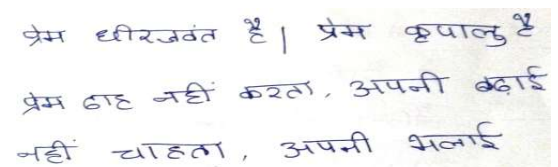 प्रेम धीरजवंत है | प्रेम कृपालु है
प्रेम डाह नहीं करता, अपनी बढ़ाई
नहीं चाहता, अपनी भलाई